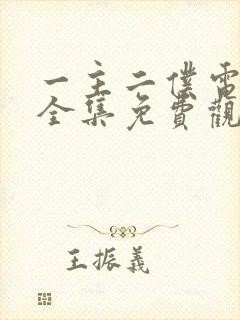 一主二僕電
全集免費觀
王振義